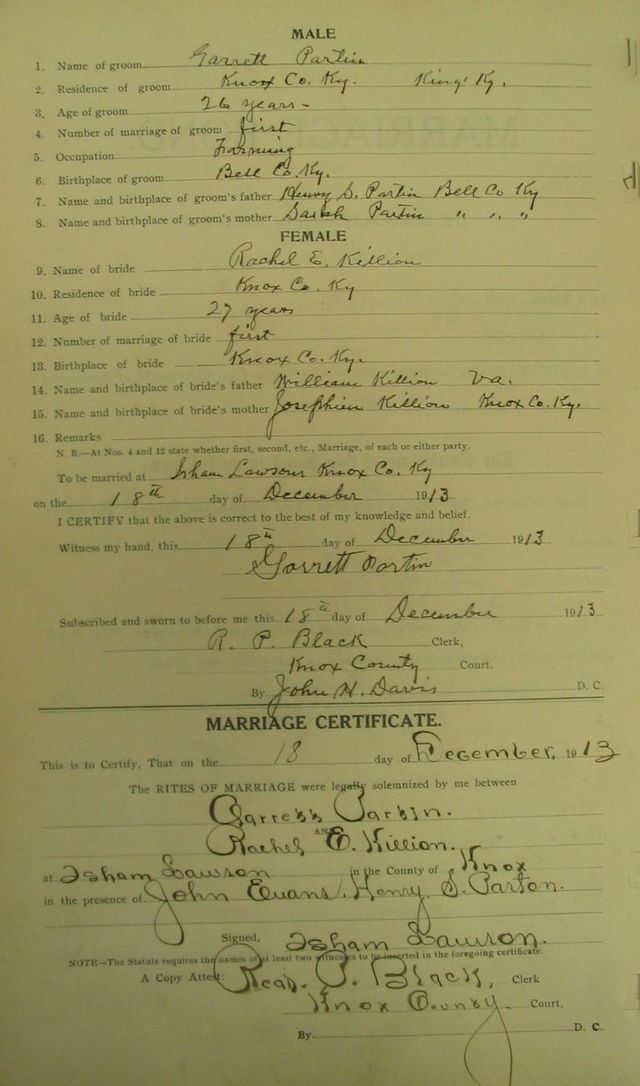 MALE
1. Name of groom Garrett Partin
2. Residence of groom Knox Co. Ky. King: Ky.
3. Age of groom 26 years -
4. Number of marriage of groom first
5. Occupation Farming
6. Birthplace of groom Bell Co. Ky.
7. Name and birthplace of groom's father Henry S. Partin Bell Co Ky
8. Name and birthplace of groom's mother Sarah Partin " " "
FEMALE
9. Name of bride Rachel E. Killion
10. Residence of bride Knox Co. Ky
11. Age of bride 27 years
12. Number of marriage of bride first
13. Birthplace of bride Knox Co. Ky.
14. Name and birthplace of bride's father William Killion Va.
15. Name and birthplace of bride's mother Josephien Killion Knox Co. Ky.
16. Remarks
N. B.—At Nos. 4 and 12 state whether first, second, etc., Marriage, of each or either party.
To be married at Isham Lawsons Knox Co. Ky
on the 18th day of December 1913
I CERTIFY that the above is correct to the best of my knowledge and belief.
Witness my hand, this 18th day of December 1913
Garrett Partin
Subscribed and sworn to before me this 18th day of December 1913
R. P. Black Clerk,
Knox County Court.
By John H. Davis D. C.
MARRIAGE CERTIFICATE.
This is to Certify, That on the 18 day of December, 1913
The RITES OF MARRIAGE were legally solemnized by me between
Garrett Partin.
AND
Rachel E. Killion.
at Isham Lawson in the County of Knox
in the presence of John Evans. Henry S. Parton.
Signed, Isham Lawson.
NOTE—The Statute requires the names of at least two witnesses to be inserted in the foregoing certificate.
A Copy Attest: Read. P. Black, Clerk
Knox County. Court,
By D. C.